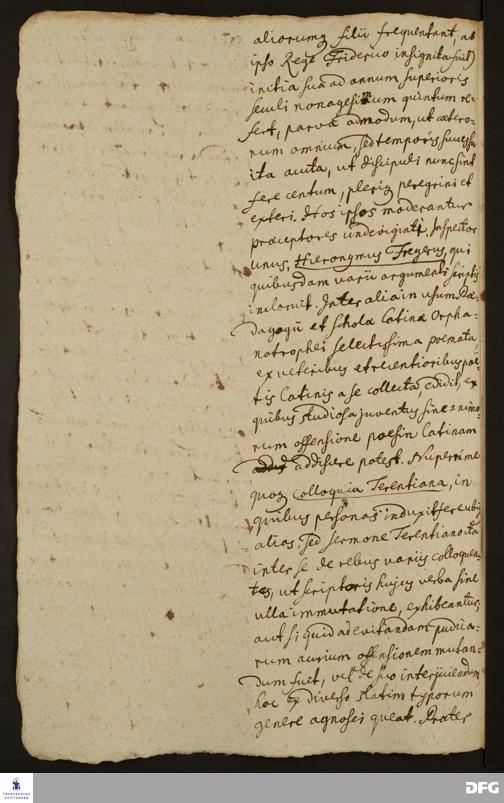 aliorumq filii frequentant, ab
ipso Rege Friderico insignita fuit)
initia sua ad annum superioris
seculi nonagesimum quintum re-
fert, parva admodum, ut cætero-
rum omnium, sed temporis successu
ita aucta, ut discipuli nunc sint
fere centum, pleriq peregrini et
exteri. Hos ipsos moderantur
præceptores undeviginti, Inspector
unus, Hieronymus Freyerus, qui
quibusdam varii argumenti scriptis
inclaruit. Inter alia in usum Pæ-
dagogii et Scholæ Latinæ Orpha-
notrophei selectissima poemata,
ex veteribus et recentioribus poe-
tis Latinis a se collecta, edidit, ex
quibus studiosa juventus sine animo-
rum offensione poesin Latinam
addiscere potest. Nuperrime
quoq Colloquia Terentiana, in
quibus personas induxit fere ubiq
alias, sed sermone Terentiano ita
inter se de rebus variis colloquen-
tes, ut scriptoris hujus verba sine
ulla immutatione, exhibeantur,
aut si quid ad evitandam pudica-
rum aurium offensionem mutan-
dum fuit, vel de suo interjiciendum
hoc ex diverso statim typorum
genere agnosci queat. Præter
FRANCKESCHE
STIFTUNGEN
DFG